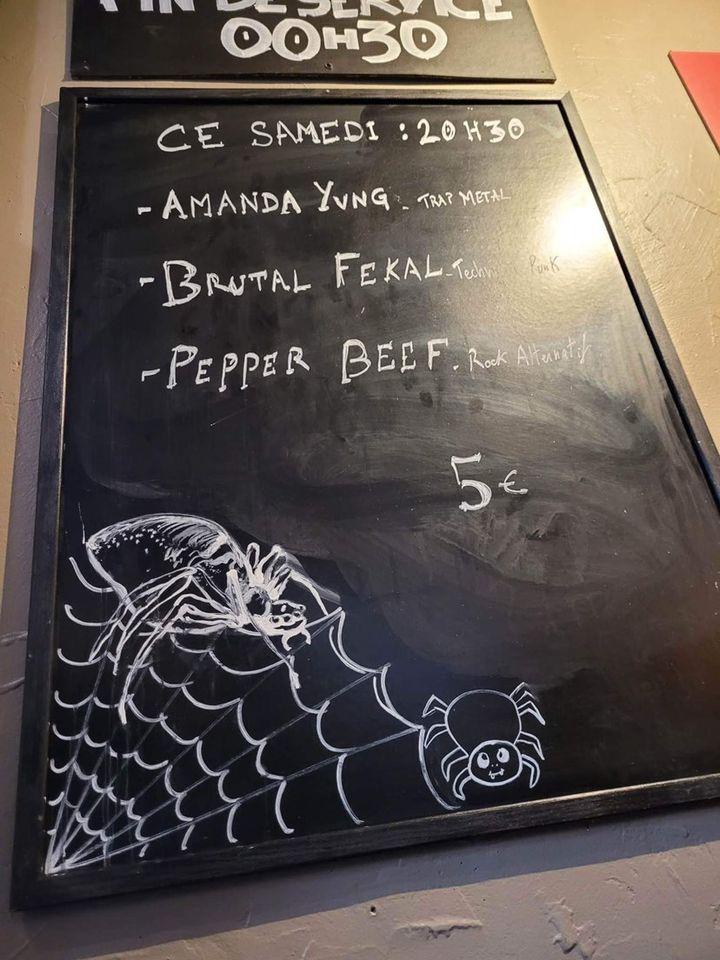 FIN DE SERVICE
00H30
CE SAMEDI : 20H30
- AMANDA YUNG - TRAP METAL
- BRUTAL FEKAL - Techn Punk
- PEPPER BEEF. Rock Alternatif
5€